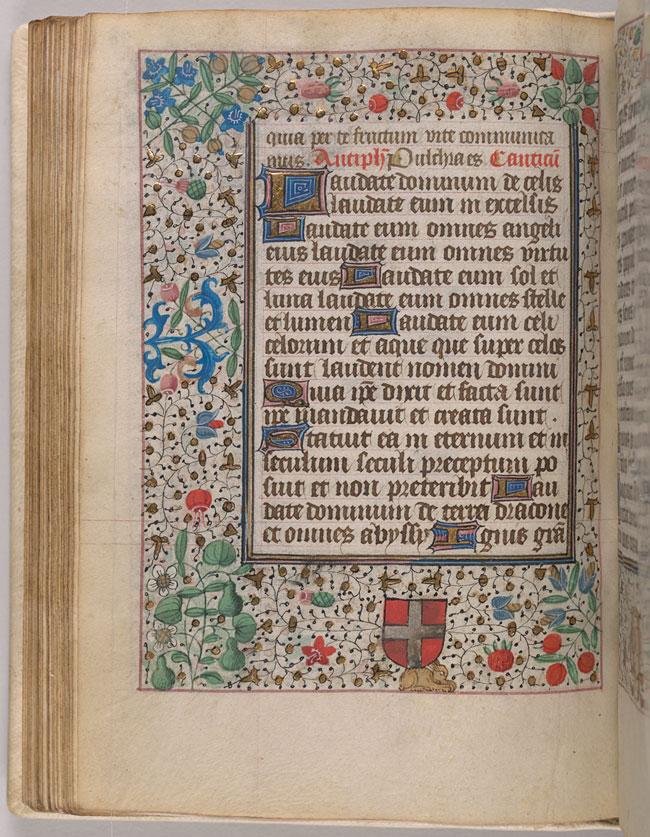 quia per te fructum vite communica
mus. Antiph̃ Pulchra es Canticũ
Laudate dominum de celis
laudate eum in excelsis
Laudate eum omnes angeli
eius laudate eum omnes virtu
tes eius Laudate eum sol et
luna laudate eum omnes stelle
et lumen Laudate eum celi
celorum et aque que super celos
sunt laudent nomen domini
Quia ip̃e dixit et facta sunt
ip̃e mandauit et creata sunt.
Statuit ea in eternum et in
seculum seculi preceptum po
suit et non preteribit Lau
date dominum de terra dracone
et omnes abyssy Ignis grã